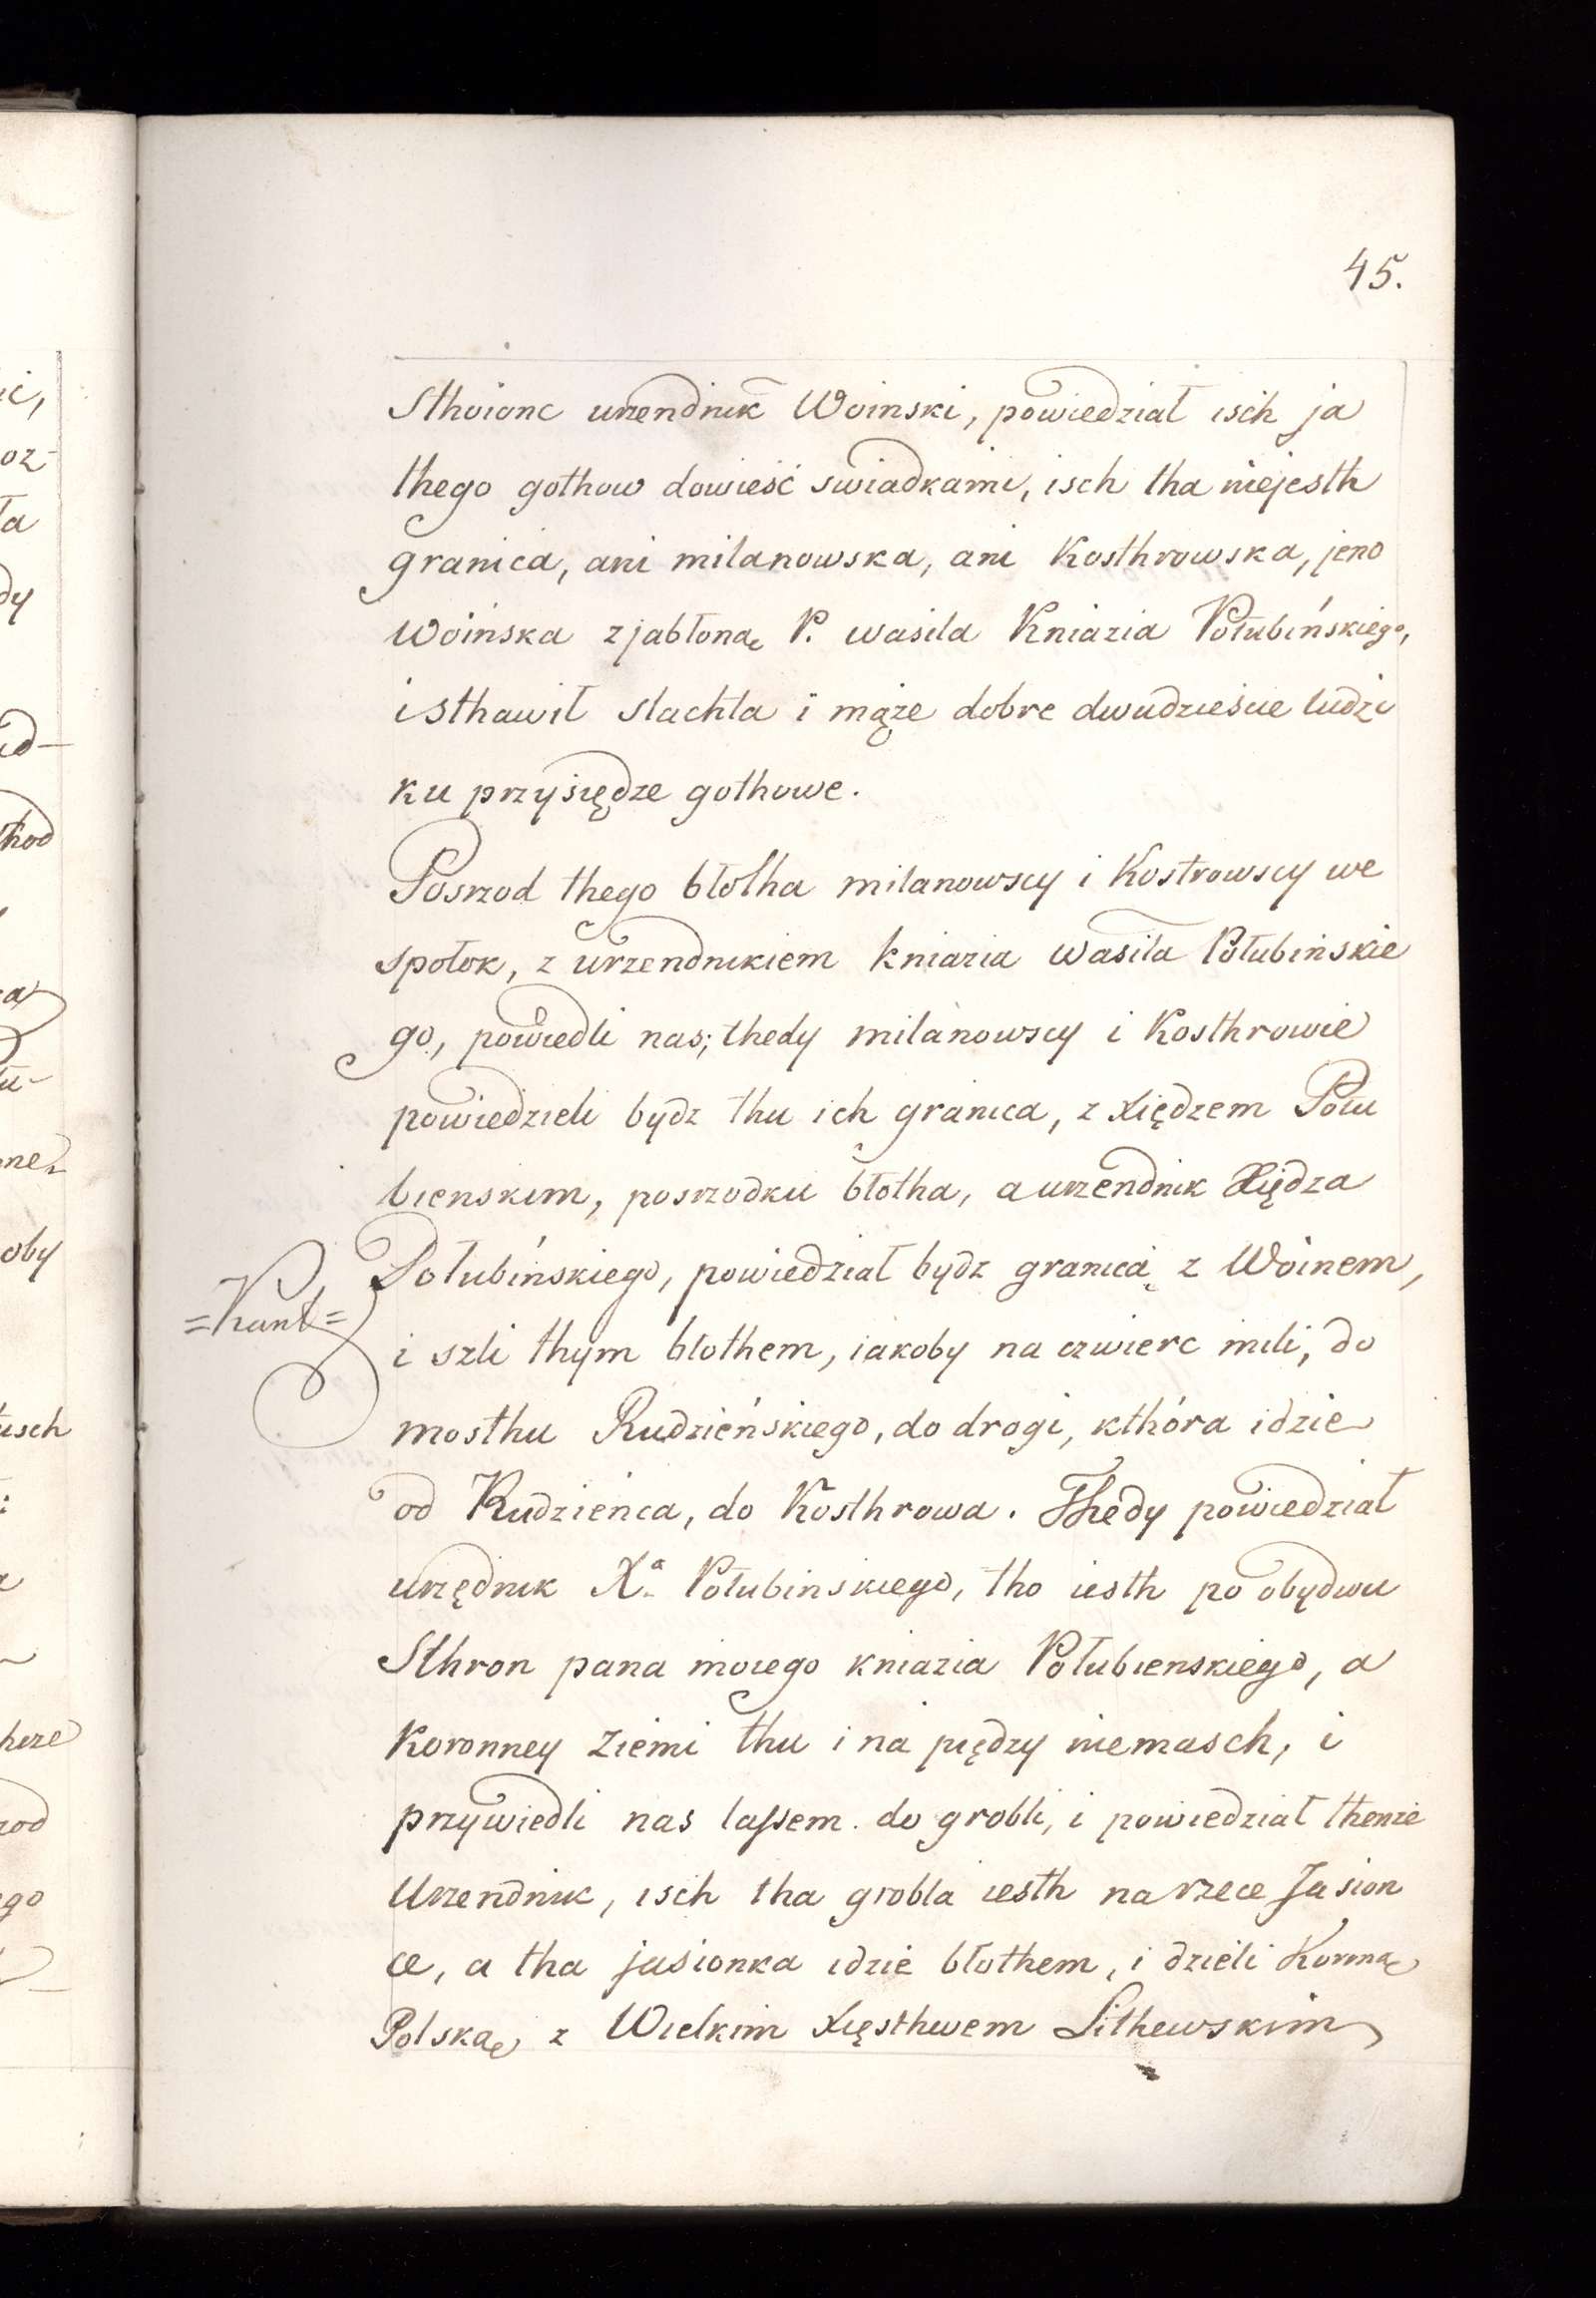 45.
Sthoionc urzendnik Woinski, powiedział isch ja
thego gothow dowieść swiadkami, isch tha niejesth
granica, ani milanowska, ani Kosthrowska, jeno
Woińska z jabłoną P. wasila Kniazia Połubińskiego,
i sthawił slachta i mąże dobre dwudzieście ludzi
ku przysiędze gothowe.
Posrzod thego błotha milanowscy i Kostrowscy we
społok, z urzendnikiem kniazia Wasila Połubinskie
go, powiedli nas; thedy milanowscy i Kosthrowie
powiedzieli bydz thu ich granica, z xiędzem Połu
bienskim, posrzodku błotha, a urzendnik Xiędza
Połubińskiego, powiedział bydz granicą z Woinem,
=Kunt=
i szli thym błothem, iakoby na czwierc mili, do
mosthu Rudzieńskiego, do drogi, kthóra idzie
od Rudzieńca, do Kosthrowa. Thedy powiedział
urzędnik Xa Połubinskiego, tho iesth po obydwu
Sthron pana moiego kniazia Połubienskiego, a
Koronney Ziemi thu i na piędzy niemasch, i
przywiedli nas lassem do grobli, i powiedział thenże
Urzendnik, isch tha grobla iesth na rzece Jasion
ce, a tha jasionka idzie błothem, i dzieli Koroną
Polską z Wielkim Xięsthwem Lithewskim
ic,
oz-
ła
dy
id-
thod
ne-
oby
usch
rod
ego